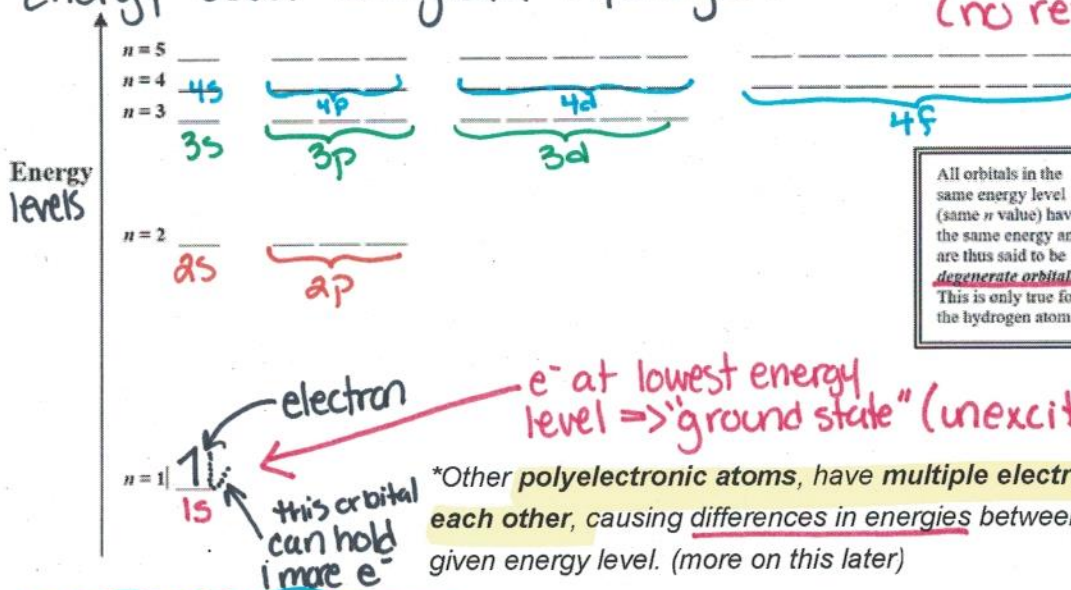 (no re
n = 5
n = 4
4s
4p
4d
4f
n = 3
3s
3p
3d
Energy
levels
All orbitals in the
same energy level
(same n value) hav
the same energy an
are thus said to be
degenerate orbital
This is only true fo
the hydrogen atom
n = 2
2s
2p
electron
e⁻ at lowest energy
level => "ground state" (unexcit
n = 1
1s
this orbital
can hold
1 more e⁻
*Other polyelectronic atoms, have multiple electr
each other, causing differences in energies between
given energy level. (more on this later)